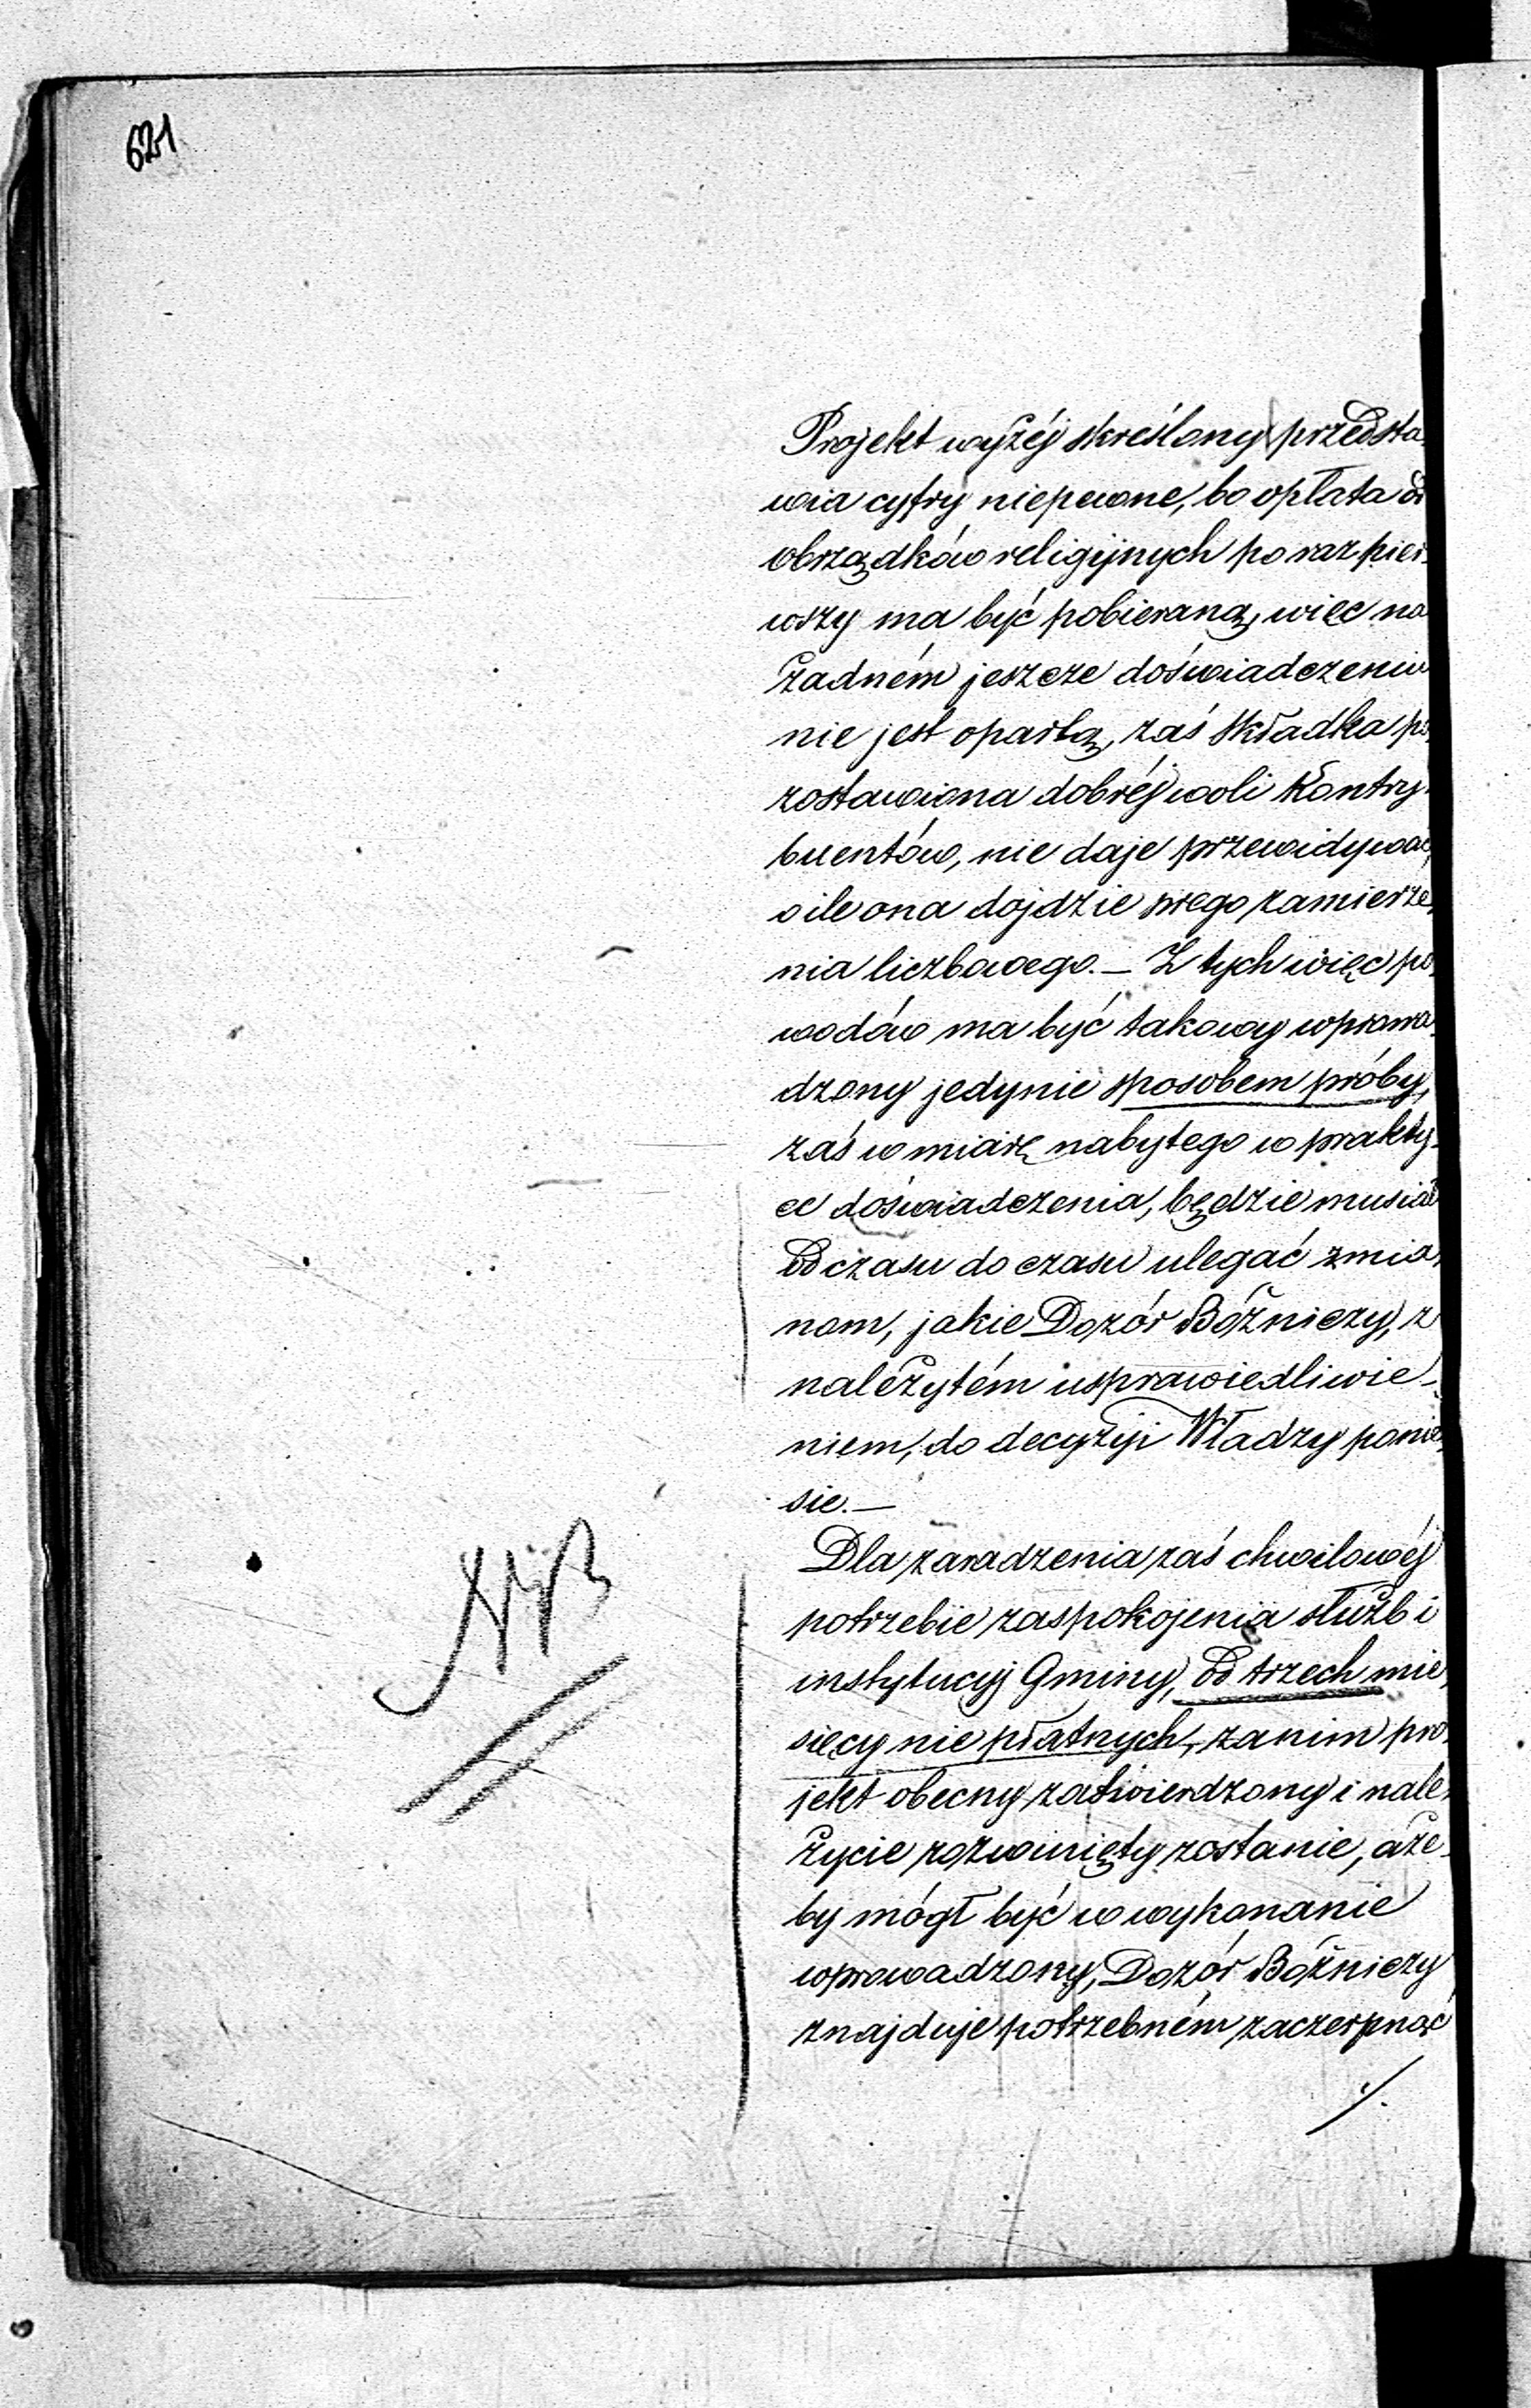 621
Projekt wyżéj skreślony przedsta-
wia cyfry niepewne, bo opłata od
obrządków religijnych po raz pier-
wszy ma być pobieraną, więc na
żadném jeszcze doświadczeniu
nie jest opartą, zaś składka po-
zostawiona dobréj woli Kontry-
buentów, nie daje przewidywać,
o ile ona dojdzie swego zamierze-
nia liczbowego. — Z tych więc po-
wodów ma być takowy wprowa-
dzony jedynie sposobem próby,
zaś w miarę nabytego w prakty-
ce doświadczenia, będzie musiał
od czasu do czasu ulegać zmia-
nom, jakie Dozór Bóżniczy, z
należytém usprawiedliwie-
niem, do decyzyi Władzy ponie-
sie. —
Dla zaradzenia zaś chwilowéj
potrzebie zaspokojenia służb i
instytucyj Gminy, od trzech mie-
sięcy nie płatnych, zanim pro-
jekt obecny zatwierdzony i nale-
życie rozwinięty zostanie, aże-
by mógł być w wykonanie
wprowadzony, Dozór Bóżniczy
znajduje potrzebném zaczerpnąć
./.